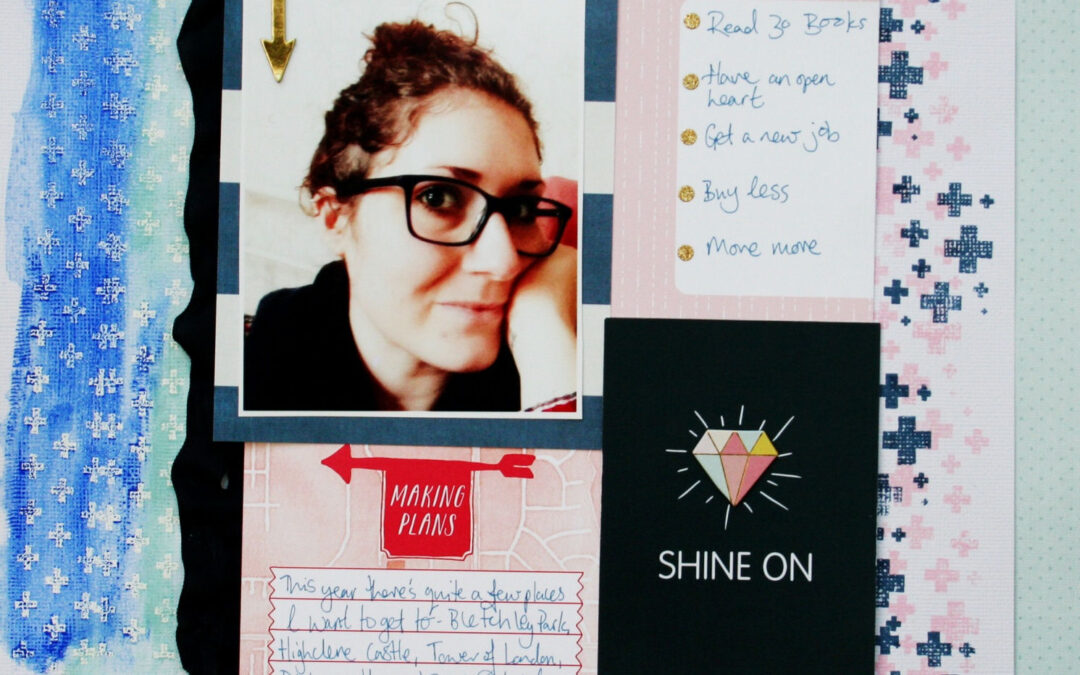 Read 30 Books
Have an open
heart
Get a new job
Buy less
Move more
MAKING
PLANS
SHINE ON
This year there's quite a few places
I want to get to - Bletchley Park,
Highclere Castle, Tower of London,